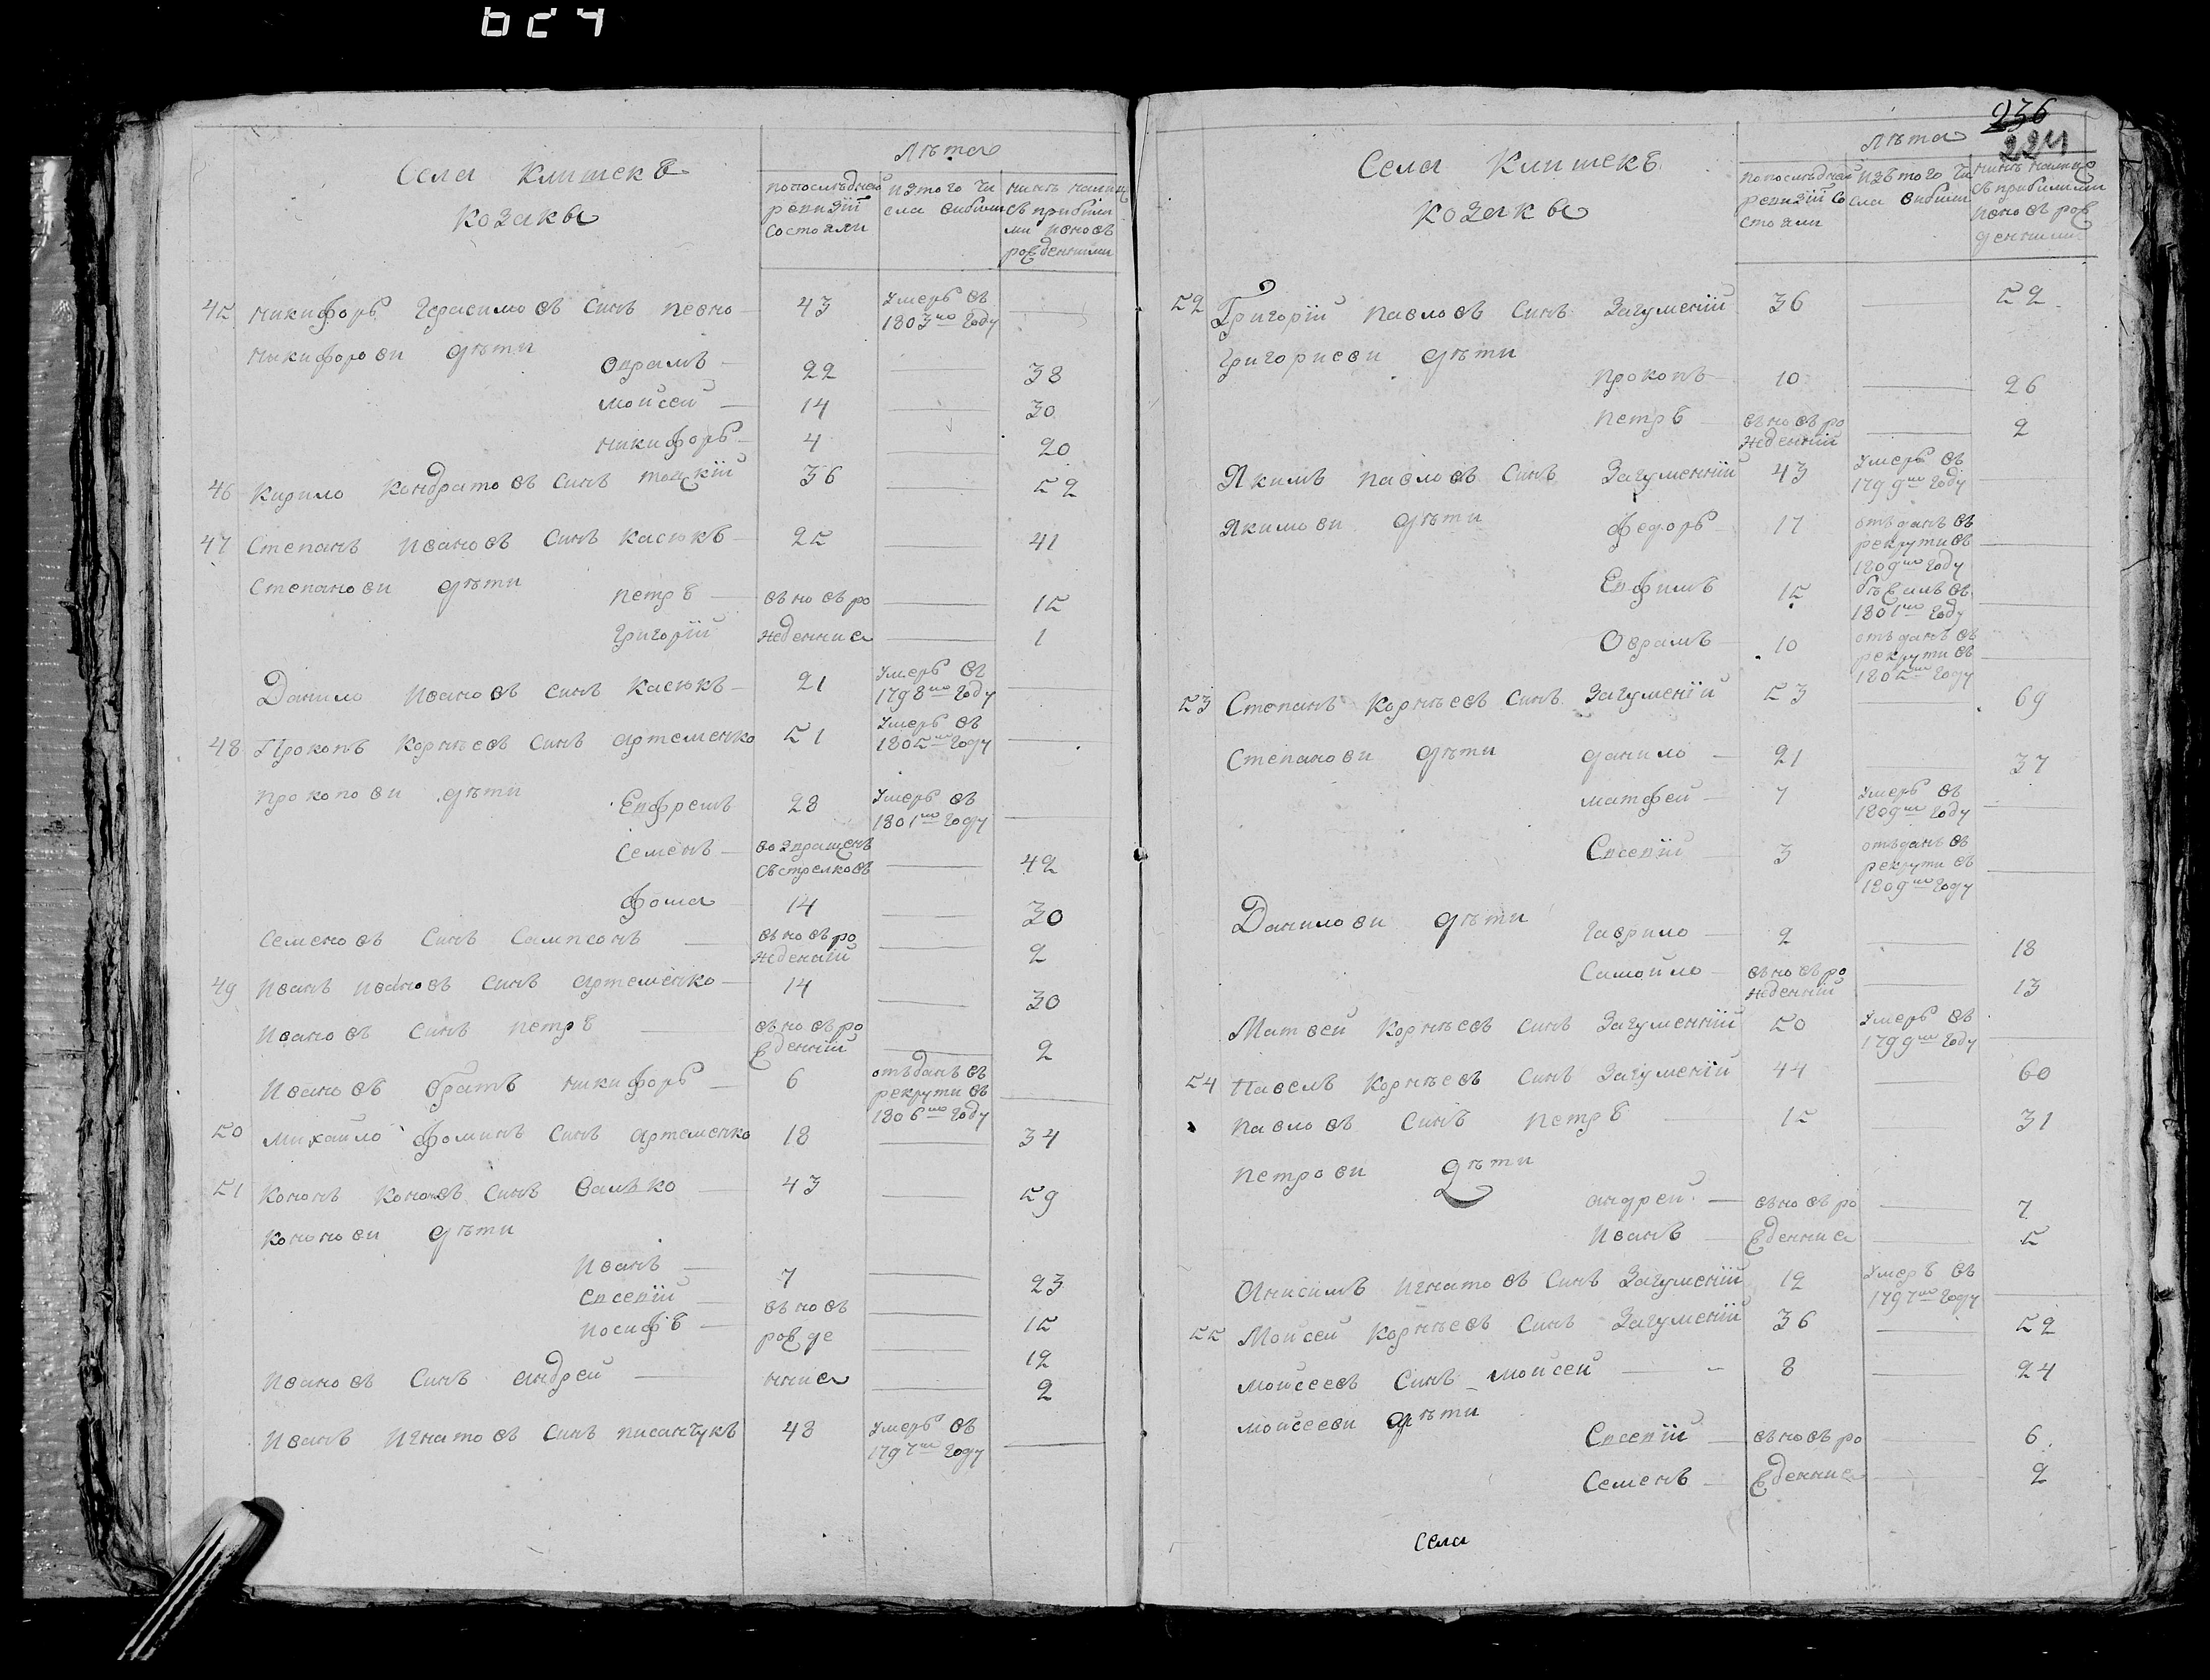 Села Клишекъ
козаки
Лѣта
по последней ревизіи состояли
изъ того числа выбыли
ныне налицо съ прибылыми и вновь рожденными
45 Никифоръ Герасимовъ синъ певно 43 Умеръ въ 1803мъ году
Никифорови дѣти
Оврамъ 22 38
Мойсей 14 30
Никифоръ 4 20
46 Кирило Кондратовъ синъ тоцкій 36 52
47 Степанъ Ивановъ синъ Касюкъ 25 41
Степанови дѣти
Петръ вновь ро 15
Григорій жденние 1
Данило Ивановъ синъ Касюкъ 21 Умеръ въ 1798мъ году
48 Прокопъ Корнѣевъ синъ артеменко 51 Умеръ въ 1805мъ году
Прокопови дѣти
Евфремъ 28 Умеръ въ 1801мъ году
Семенъ возвращенъ съ стрелковъ 42
Фома 14 30
Семеновъ синъ Сампсонъ вновь рожденній 2
49 Иванъ Ивановъ синъ артеменко 14 30
Ивановъ синъ Петръ вновь рожденній 2
Ивановъ братъ Никифоръ 6 отъданъ въ рекрути въ 1806мъ году
50 Михайло Фоминъ синъ артеменко 18 34
51 Кононъ Кононовъ синъ Валько 43 59
Кононови дѣти
Иванъ 7 23
Евсевій вновь 15
Иосифъ рожде 12
Ивановъ синъ андрей нние 2
Иванъ Игнатовъ синъ писанчукъ 48 Умеръ въ 1797мъ году
236
224
Села Клишекъ
козаки
Лѣта
по последней ревизіи состояли
изъ того числа выбыли
ныне налицо съ прибылыми и вновь рожденными
52 Григорій Павловъ синъ Загуменій 36 52
Григориеви дѣти
Прокопъ 10 26
Петръ вновь рожденній 2
Якимъ Павловъ синъ Загуменній 43 Умеръ въ 1799мъ году
Якимови дѣти
Федоръ 17 отъданъ въ рекрути въ 1809мъ году
Евфимъ 15 бѣжалъ въ 1801мъ году
Оврамъ 10 отъданъ въ рекрути въ 1805мъ году
53 Степанъ Корнѣевъ синъ Загуменій 53 69
Степанови дѣти
данило 21 37
матфей 7 Умеръ въ 1809мъ году
Евсевій 3 отъданъ въ рекрути въ 1809мъ году
Данилови дѣти
Гаврило 2 18
Самойло вновь рожденній 13
Матвей Корнѣевъ синъ Загуменній 50 Умеръ въ 1799мъ году
54 Павелъ Корнѣевъ синъ Загуменій 44 60
Павловъ синъ Петръ 15 31
Петрови дѣти
андрей вновь ро 7
Иванъ жденние 5
Онисимъ Игнатовъ синъ Загуменій 12 Умеръ въ 1797мъ году
55 Мойсей Корнѣевъ синъ Загуменій 36 52
Мойсеевъ синъ мойсей 8 24
Мойсееви дѣти
Евсевій вновь ро 6
Семенъ жденние 2
Села